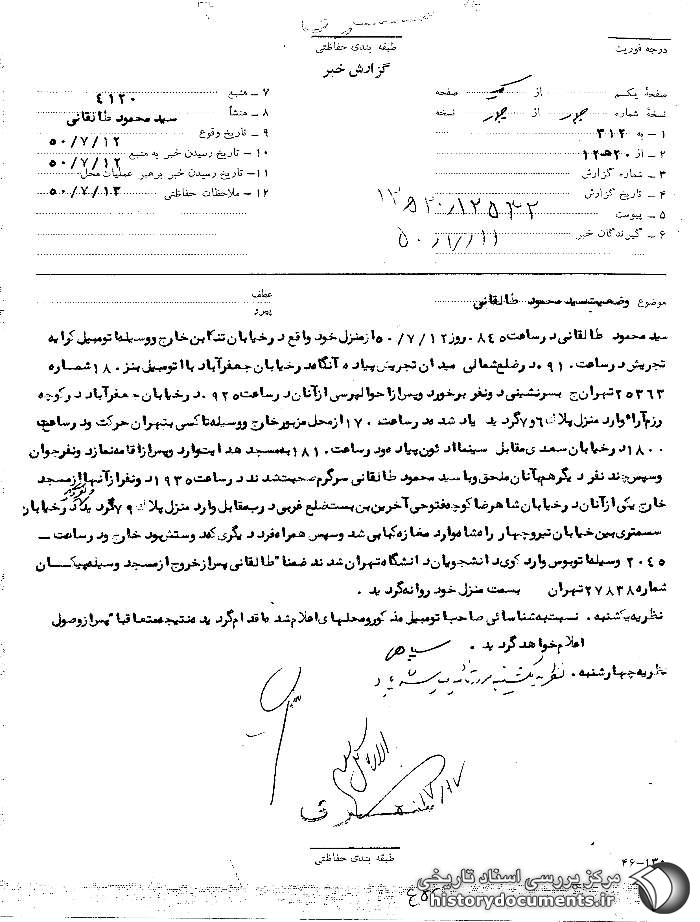 درجه فوریت
طبقه بندی حفاظتی
گزارش خبر
صفحهٔ یکم از یک صفحه
نسخهٔ شماره چهار از چهار نسخه
۱ - به ۳۱۲
۲ - از ۲۰ ه ۱۲
۳ - شماره گزارش
۴ - تاریخ گزارش
۵ - پیوست
۶ - گیرندگان خبر
۷ - منبع ۴۱۲۰
۸ - منشأ سید محمود طالقانی
۹ - تاریخ وقوع ۵۰/۷/۱۲
۱۰ - تاریخ رسیدن خبر به منبع ۵۰/۷/۱۲
۱۱ - تاریخ رسیدن خبر برهبر عملیات محل
۱۲ - ملاحظات حفاظتی ۵۰/۷/۱۳
موضوع وضعیت سید محمود طالقانی
عطف
پیرو
سید محمود طالقانی در ساعت ۰۸۴۵ روز ۵۰/۷/۱۲ از منزل خود واقع در خیابان تنکابن خارج و وسیله اتومبیل کرایه
تجریش در ساعت ۰۹۱۰ در ضلع شمالی میدان تجریش پیاده آنگاه در خیابان جعفرآباد با اتومبیل بنز ۱۸۰ شماره
۲۵۳۶۳ تهران ج بسرنشینی دو نفر برخورد و پس از احوالپرسی از آنان در ساعت ۰۹۲۵ در خیابان جعفرآباد در کوچه
رزم آرا وارد منزل پلاک ۶و۷ گردید یاد شده در ساعت ۱۷۰ از محل مزبور خارج و وسیله تاکسی بتهران حرکت و در ساعت
۱۸۰۰ در خیابان سعدی مقابل سینما ادئون پیاده و در ساعت ۱۸۱۰ به مسجد هدایت وارد و پس از اقامه نماز دو نفر جوان
و سپس چند نفر دیگر هم بآنان ملحق و با سید محمود طالقانی سرگرم صحبت شدند در ساعت ۱۹۳۵ دو نفر از آنها از مسجد
خارج یکی از آنان در خیابان شاهرضا کوچه فتوحی آخرین بن بست ضلع غربی درب مقابل وارد منزل پلاک ۷۹ گردید در خیابان
سی متری بین خیابان نیرو چهار راه شاه وارد مغازه کبابی شد و سپس همراه فرد دیگری که دوستش بود خارج و در ساعت -
۲۰۴۵ وسیله اتوبوس وارد کوی دانشجویان دانشگاه تهران شدند ضمنا" طالقانی پس از خروج از مسجد وسیله پیکان
شماره ۲۷۸۳۸ تهران بسمت منزل خود روانه گردید .
نظریه یکشنبه . نسبت به شناسائی صاحب اتومبیل مذکور و محلهای اعلام شده اقدام گردیده نتیجه متعاقبا" پس از وصول
اعلام خواهد گردید .
نظریه چهارشنبه . نظریه یکشنبه مورد تائید است
طبقه بندی حفاظتی
۴۶-۱۳۸
مرکز بررسی اسناد تاریخی
historydocuments.ir